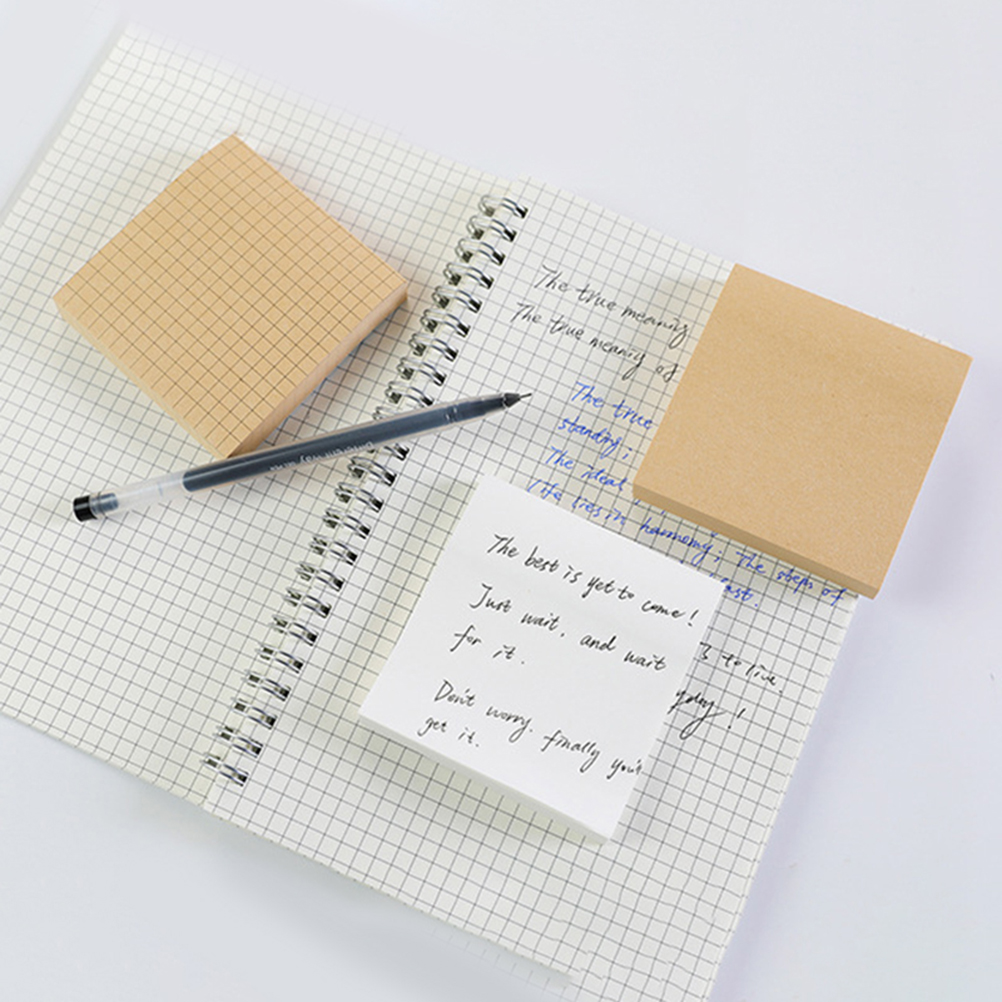 The true meaning
The true meaning of
The true
standing;
The ideal
Life lies in harmony; The steps of
east.
to live.
!
The best is yet to come!
Just wait, and wait
for it.
Don't worry. finally you'll
get it.